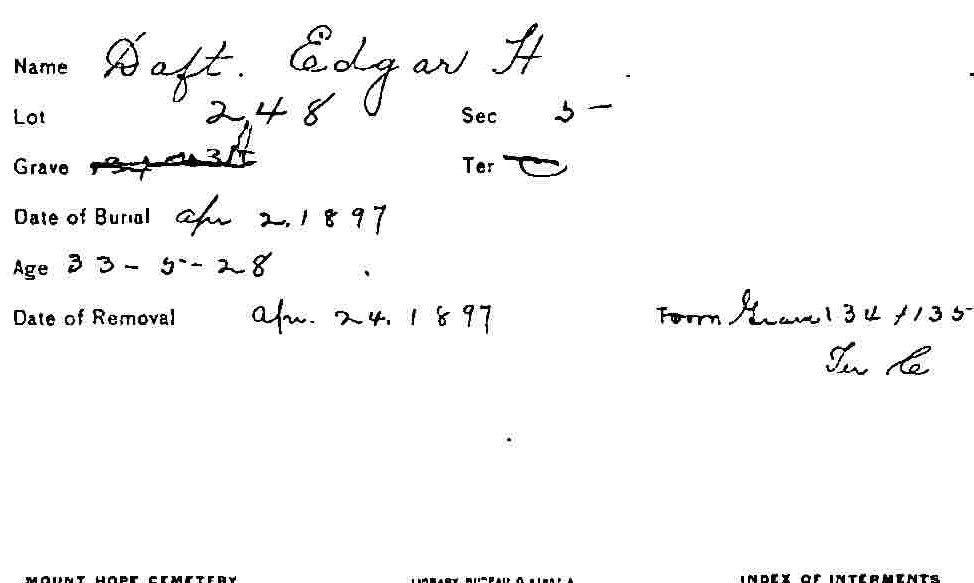 Name Daft. Edgar H
Lot 248 Sec 5
Grave
Ter
Date of Burial Apr 2. 1897
Age 33-5-28
Date of Removal Apr. 24. 1897 From Grave 134/135
Ter C
MOUNT HOPE CEMETERY LIBRARY BUREAU INDEX OF INTERMENTS